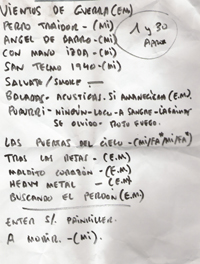 VIENTOS DE GUERRA (EM)
1 y 30
APROX
PERRO TRAIDOR - (MI)
ANGEL DE BARRO - (MI)
CON MANO IZDA - (MI)
SAN TELMO 1940 - (MI)
SALVATE / SMOKE
BALADAS - ACUSTICAS. SI AMANECIERA (E.M)
POPURRI - NINGUN-LOCU - A SANGRE - LAGRIMAS
SE OLVIDO - ROTO FUEGO.
LAS PUERTAS DEL CIELO - (MI/FA# MI/FA#)
TRAS LAS REJAS - (E.M)
MALDITO CORAZÓN - (E.M)
HEAVY METAL - (E.M)
BUSCANDO EL PERDON (E.M)
ENTER S/. PAINKILLER.
A MORIR. - (MI).